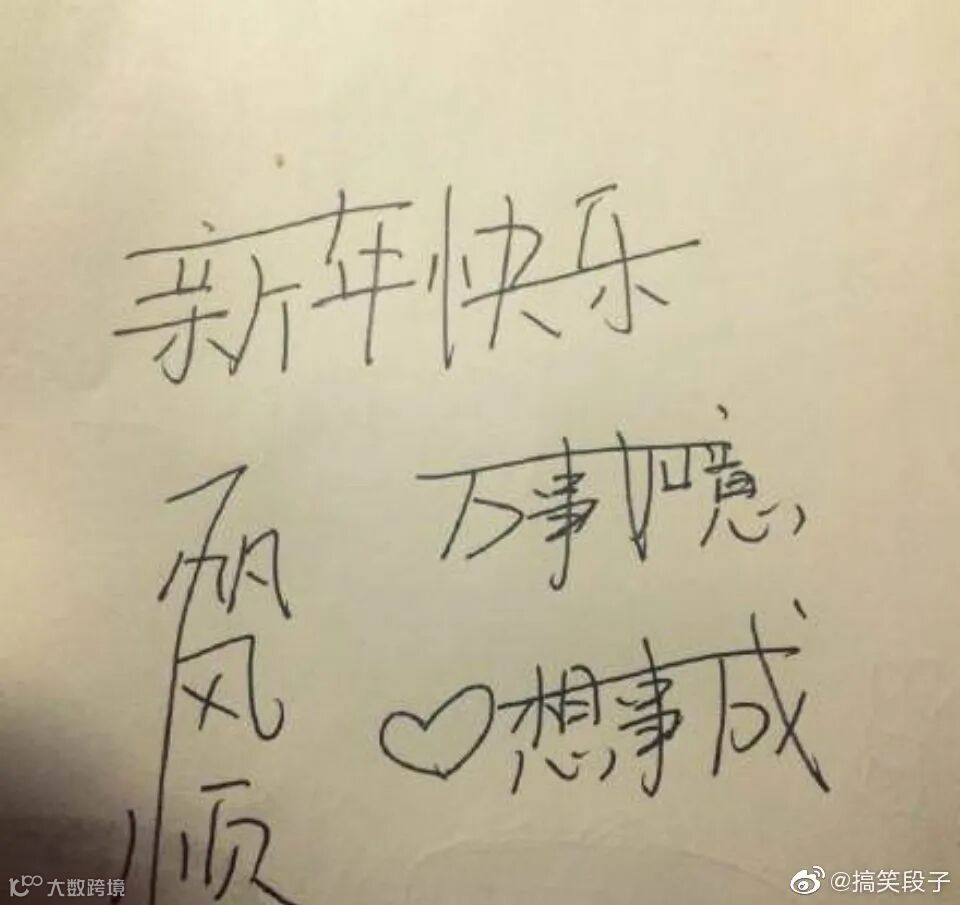 新年快乐
万事如意
♡想事成
一帆风顺
大数跨境
@搞笑段子